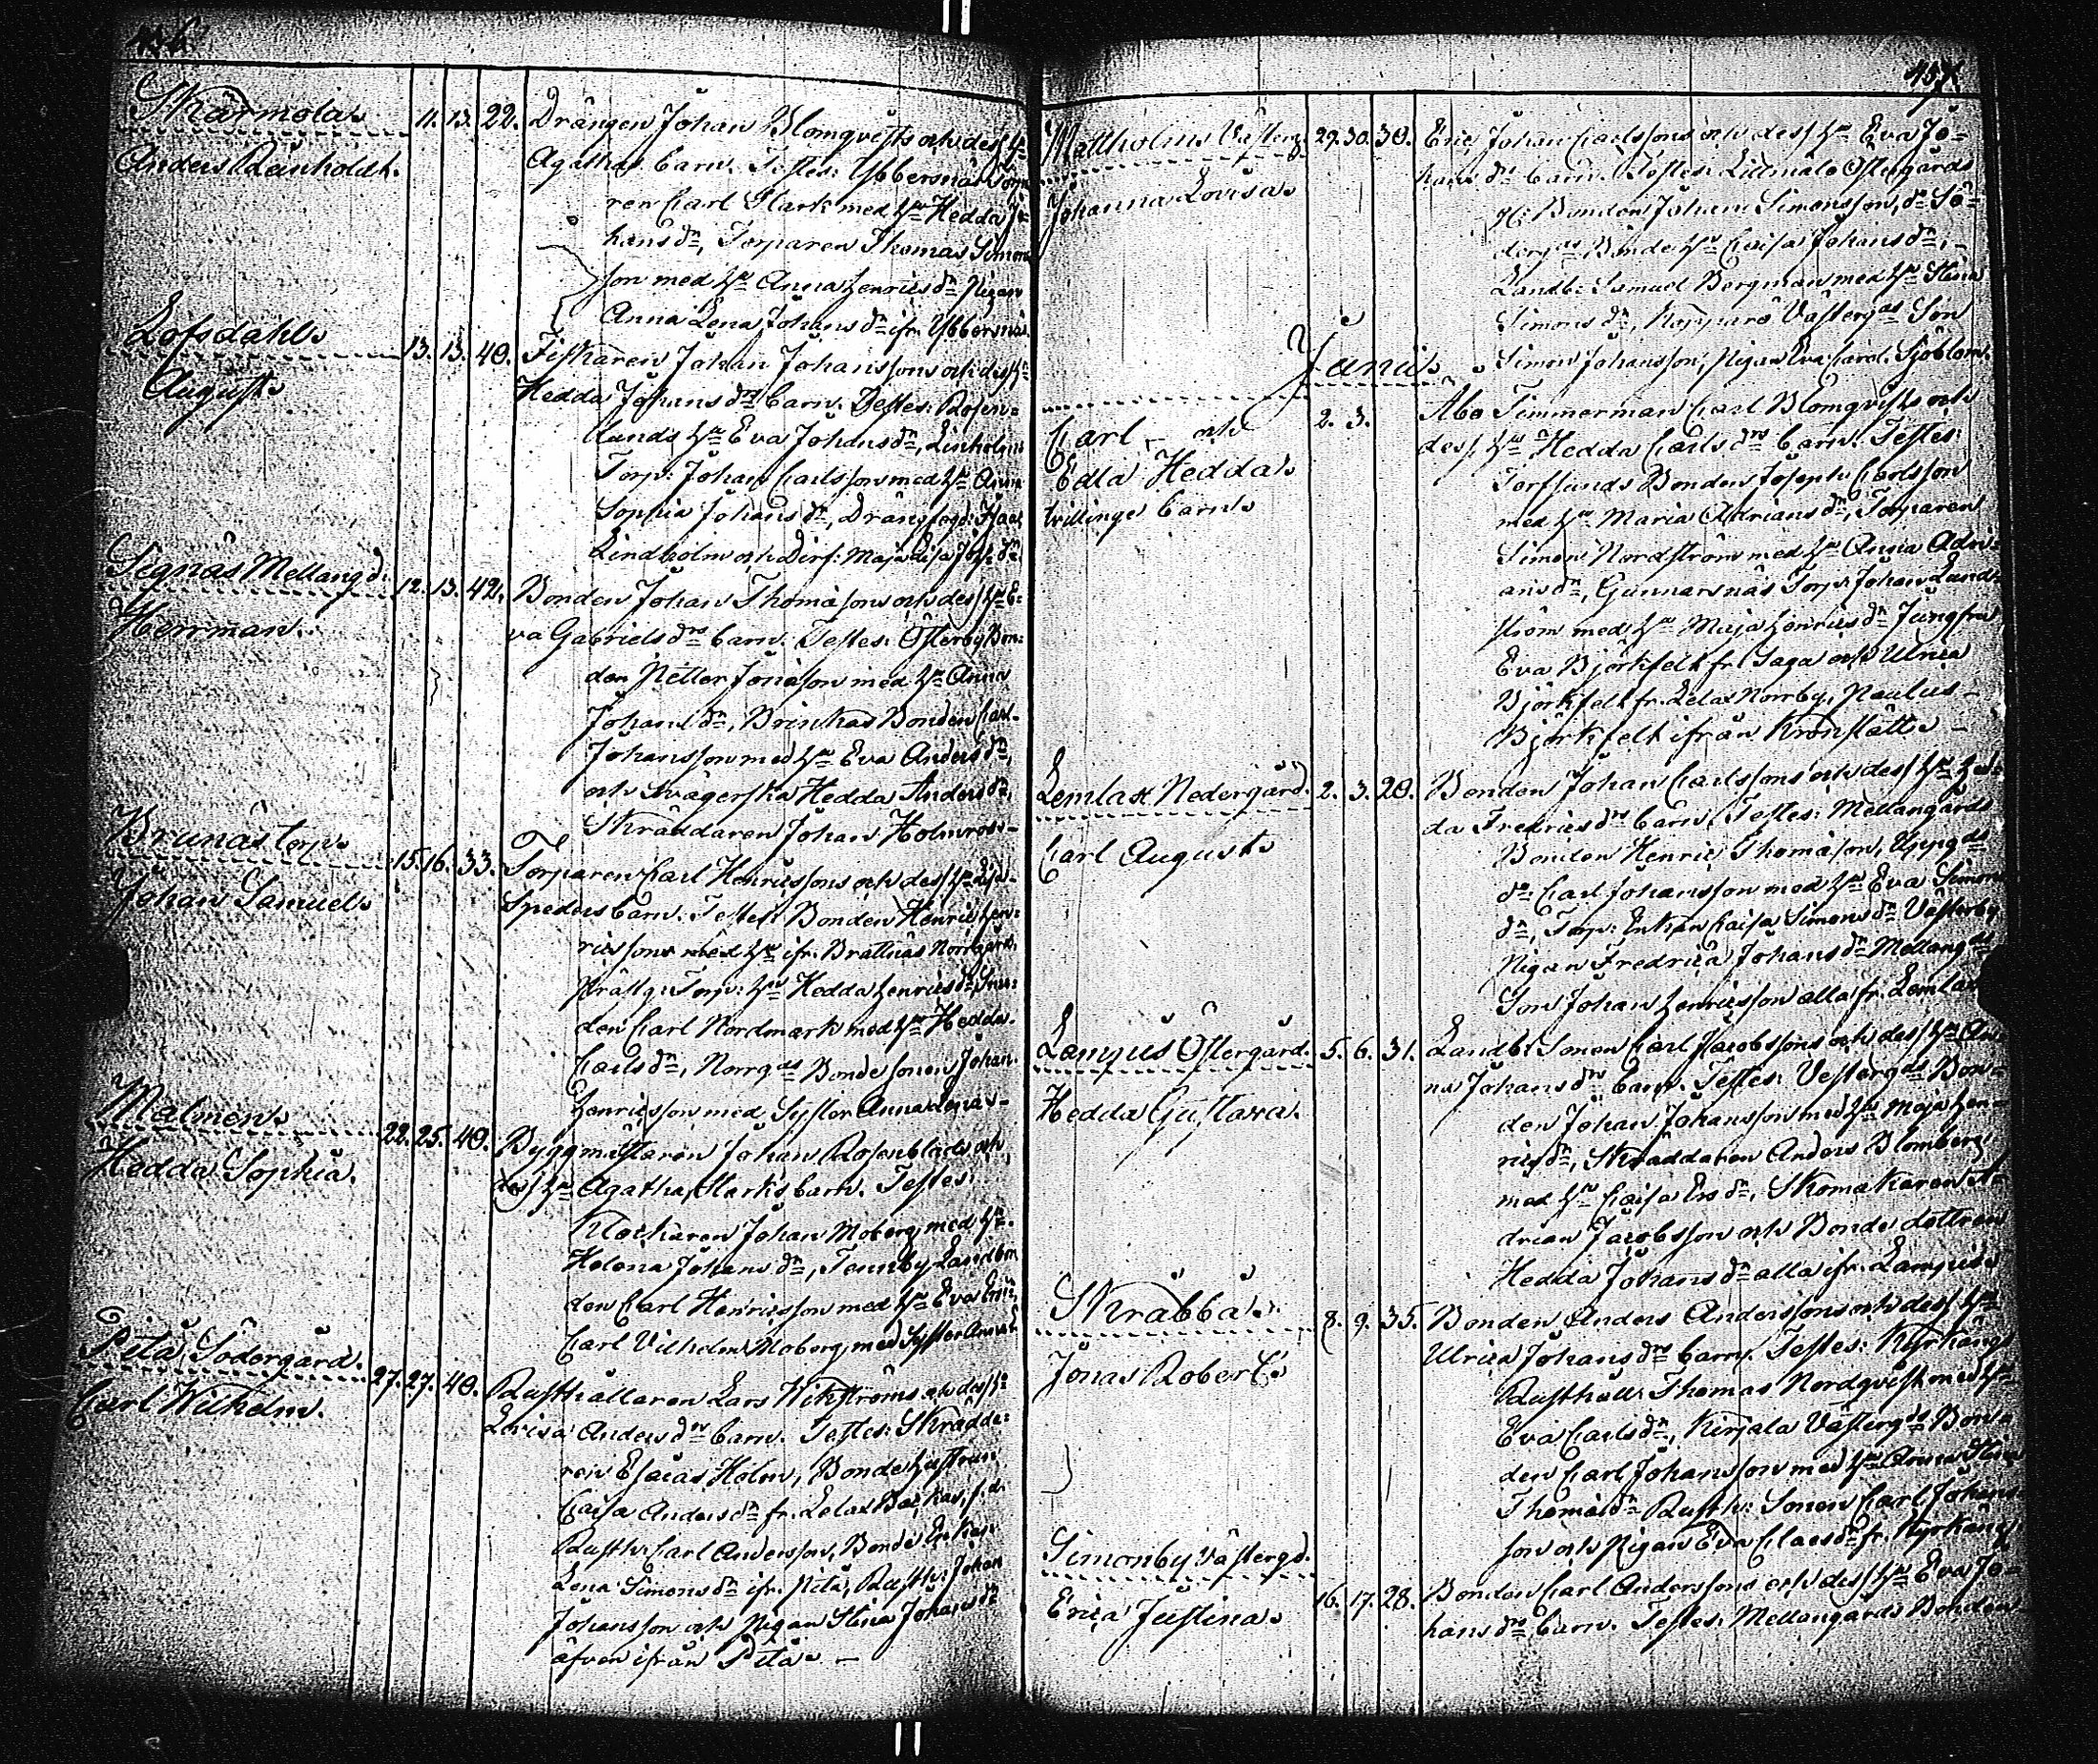 Skärmola
Anders Reinholdt.
11. 13. 22.
Drängen Johan Blomqvists och dess H
Agathas barn. Testes: Ybbersnäs Torpa
ren Carl Stark med H Hedda Jo
hans dr, Torparen Thomas Simons
son med H Anna Henrics dr Pigan
Anna Lena Johans dr ifr. Ybbersnäs.
Lofsdahl
August
13. 13. 40.
Fiskaren Johan Johanssons och dess H
Hedda Johans drs barn. Testes: Rosen=
lunds H Eva Johans dr,
Torp: Johan Carlsson med H Anna
Sophia Johans dr, Isaac
Lindholm och Maja Lisa dr
Signäs Mellangd:
Herrman.
12. 13. 42.
Bonden Johan Thomassons och dess H E=
va Gabriels drs barn. Testes: Österby Bon=
den Petter Jonasson med H Anna
Johans dr, Brinkas Bonden Carl
Johansson med H Eva Anders dr,
och Svägerska Hedda Anders dr,
Skräddaren Johan Holmroos
Brunäs torp
Johan Samuel
15. 16. 33.
Torparen Carl Henricssons och dess H Lisa
Speders barn. Testes: Bonden Henric Hen=
ricsson med H ifr. Brattnäs Norrgård,
Prästg: Torp: H Hedda Henrics dr,
den Carl Nordmark med H Hedda
Carls dr, Norrgds Bonde sonen Johan
Henricsson med Syster Anna Lena
Malmen
Hedda Sophia.
22. 25. 40.
Byggmästaren Johan Rosenblads och
dess H Agatha Starks barn. Testes:
Klockaren Johan Moberg med H
Helena Johans dr, Tennby Landbon
den Carl Henricsson med H Eva
Carl Vilhelm Moberg med Syster
Pita Södergård.
Carl Wilhelm.
27. 27. 40.
Rusthållaren Lars Wikströms och dess H
Lovisa Anders drs barn. Testes: Skrädda=
ren Esaias Holm, Bonde Hustrun
Caisa Anders dr fr. Lelax Backas, f.d.
Rusth: Carl Andersson, Bonde Enkan
Lena Simons dr ifr. Pita, Rusth: Johan
Johansson och Pigan Stina Johans dr
äfven ifrån Pita. —
457.
Mattholms Västerg.
Johanna Lovisa
29. 30. 30.
Eric Johan Carlssons och dess H Eva Jo=
hans drs barn. Testes: Lillmälö Östergårds
Bonden Johan Simonsson, dr Sö=
dergds Bonde H Caisa Johans dr,
Landb: Samuel Bergman med H Stina
Simons dr, Västergds Son
Simon Johansson, Pigan Eva Carol. Sjöblom.
Junii
Carl och
Edla Hedda
tvillinge barn
2. 3.
Åbo Timmerman Carl Blomqvists och
dess H Hedda Carls drs barn. Testes:
Torfsunds Bonden Joseph Carlsson
med H Maria Adrians dr, Torparen
Simon Nordström med H Anna Adri=
ans dr, Gunnarsnäs Torp: Johan Lund=
ström med H Maja Henrics dr Jungfru
Eva Björkfelt fr. Saga och Ulrica
Björkfelt fr. Lelax Norrby, Paulus
Björkfelt ifrån Kronstätt. —
Lemlax Nedergård.
Carl August
2. 3. 20.
Bonden Johan Carlssons och dess H Hed=
da Fredrics drs barn. Testes: Mellangårds
Bonden Henric Thomasson, Uppgds
do: Carl Johansson med H Eva Simons
dr, Torp: Enkan Caisa Simons dr Västerby
Pigan Fredrica Johans dr Mellangds
Son Johan Henricsson alla fr. Lemlax
Lampis Östergård.
Hedda Gustava.
5. 6. 31.
Landb: Sonen Carl Jacobssons och dess H An
na Johans drs barn. Testes: Vestergds Bon=
den Johan Johansson med H Maja Hen=
rics dr, Skräddaren Anders Blomberg
med H Caisa Ers dr, Skomakaren A=
drian Jacobsson och Bonde dottren
Hedda Johans dr alla ifr. Lampis
Skräbba
Jonas Robert
8. 9. 35.
Bonden Anders Anderssons och dess H
Ulrica Johans drs barn. Testes: Kyrkängs
Rusthåll: Thomas Nordqvist med H
Eva Carls dr, Kirjala Västergds Bon=
den Carl Johansson med H Anna Stina
Thomas dr Rusth: Sonen Carl Johans
son och Pigan Eva Claes dr fr. Kyrkängs
Simonby Västergd.
Erica Justina
16. 17. 28.
Bonden Carl Anderssons och dess H Eva Jo=
hans drs barn. Testes: Mellangårds Bonden